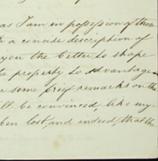 as I am in possession of these
a concise description of
you the better to shape
to property to advantage
some brief remarks on the
ll be convinced, like my
been lost and indeed that the